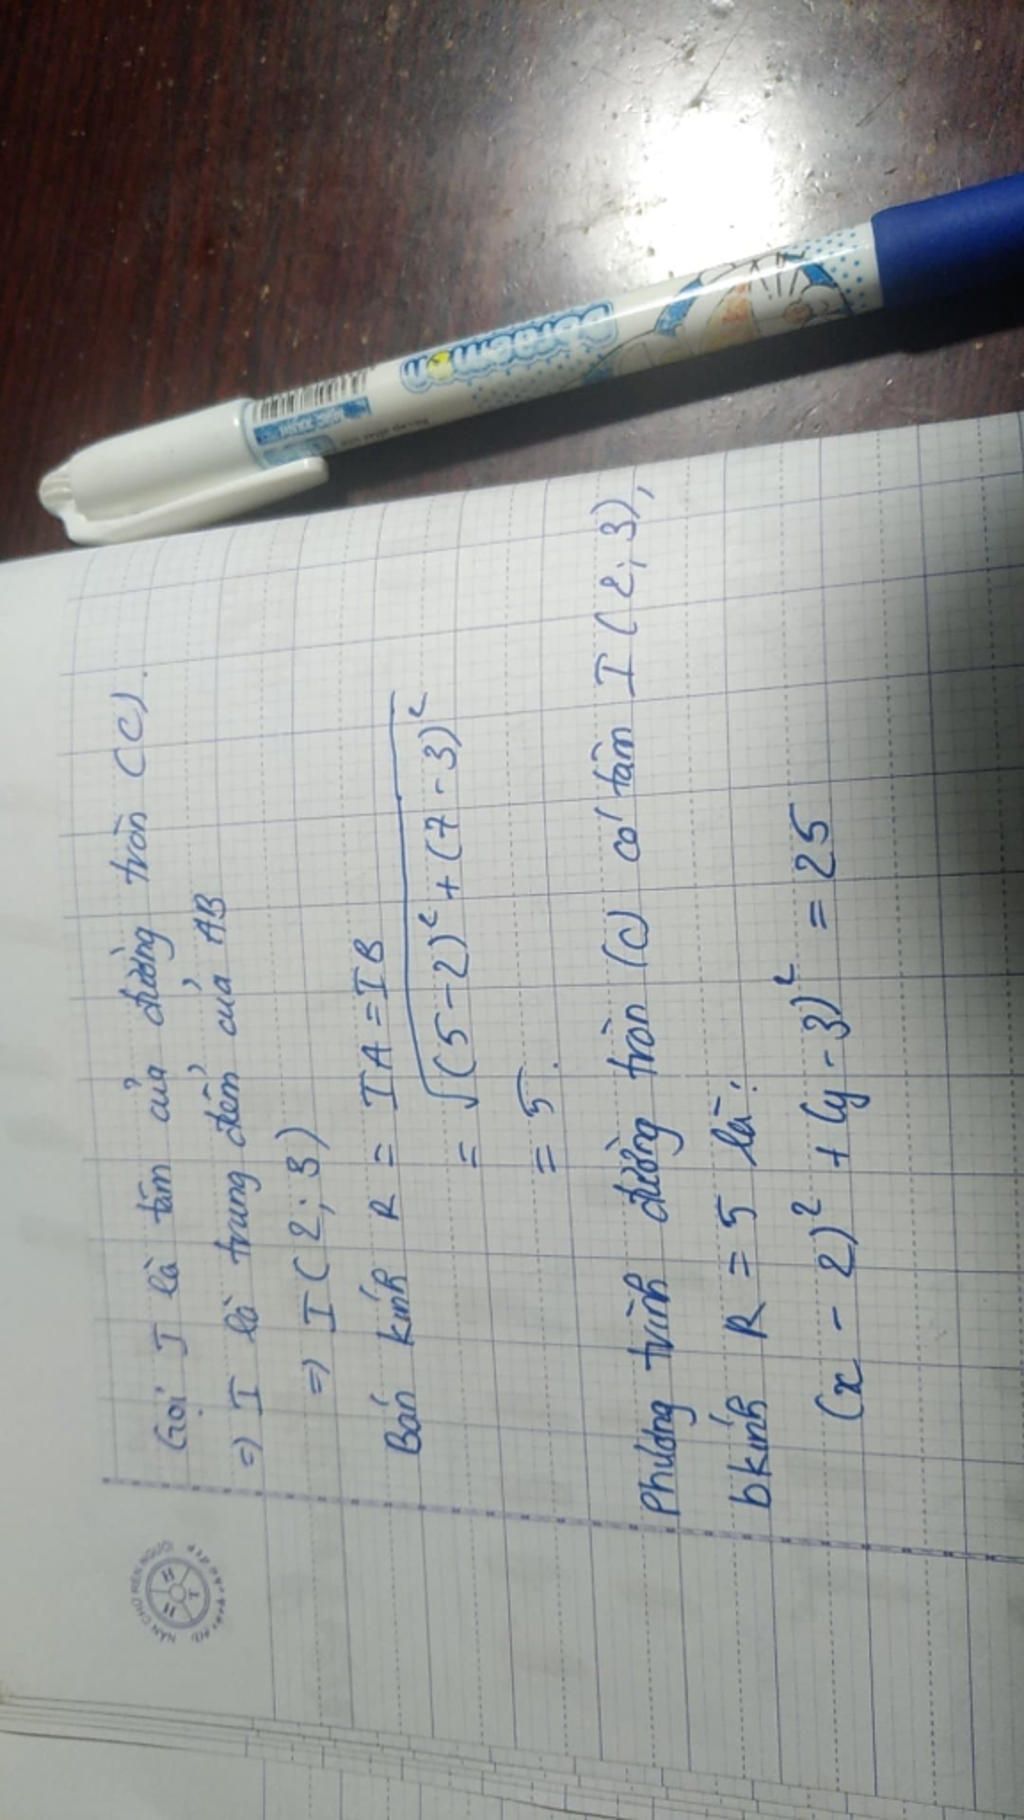 Gọi I là tâm của đường tròn (C).
=) I là trung điểm của AB
=) I (2; 3)
Bán kính R = IA = IB
= √(5-2)² + (7-3)²
= 5.
Phương trình đường tròn (C) có tâm I (2; 3),
bkính R = 5 là:
(x - 2)² + (y - 3)² = 25
Doraemon